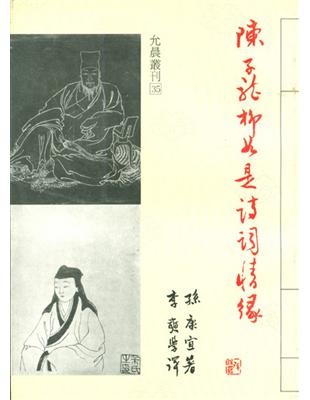 陳子龍柳如是詩詞情緣
允晨叢刊35
孫康宜著
李奭學譯